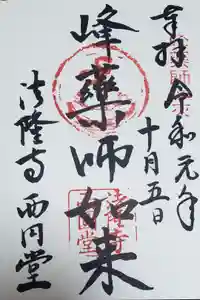 奉拝 令和元年
十月五日
峰薬師如来
法隆寺 西円堂